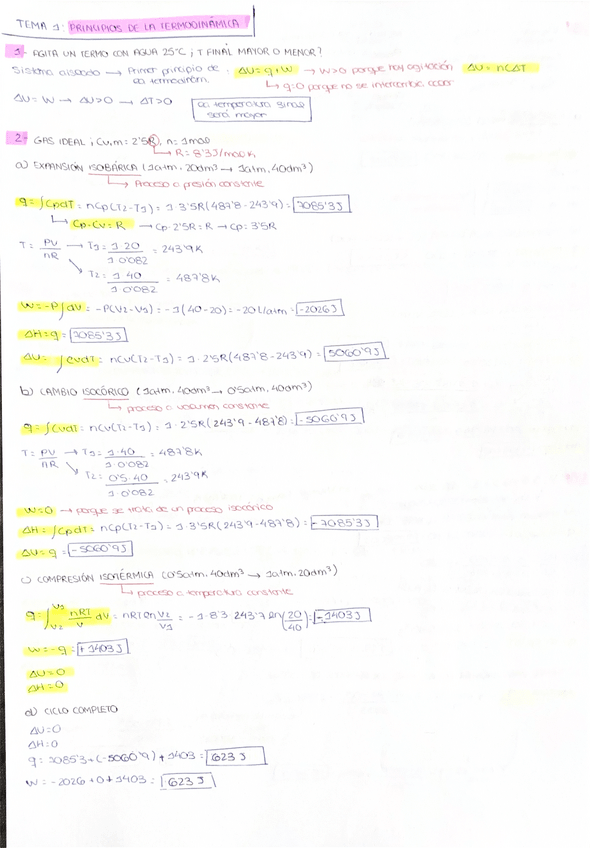 TEMA 1: PRINCIPIOS DE LA TERMODINÁMICA
1- AGITA UN TERMO CON AGUA 25ºC ¿T FINAL MAYOR O MENOR?
Sistema aislado → Primer principio de la termodinám. ΔU = q + W → W>0 porque hay agitación ΔU = nCΔT
↳ q=0 porque no se intercambia calor
ΔU = W → ΔU>0 → ΔT>0 la temperatura final será mayor
2- GAS IDEAL ; Cv,m = 2'5R, n = 1mol
↳ R = 8'3J/molK
a) EXPANSIÓN ISOBÁRICA (1atm, 20dm³ → 1atm, 40dm³)
↳ Proceso a presión constante
q = ∫CpdT = nCp(T2-T1) = 1·3'5R(487'8-243'9) = 7085'3J
↳ Cp-Cv = R → Cp-2'5R = R → Cp = 3'5R
T = PV/nR → T1 = 1·20/1·0'082 = 243'9K
↘ T2 = 1·40/1·0'082 = 487'8K
W = -P∫dV = -P(V2-V1) = -1(40-20) = -20 l/atm = -2026J
ΔH = q = 7085'3J
ΔU = ∫CvdT = nCv(T2-T1) = 1·2'5R(487'8-243'9) = 5060'9J
b) CAMBIO ISOCÓRICO (1atm, 40dm³ → 0'5atm, 40dm³)
↳ proceso a volumen constante
q = ∫CvdT = nCv(T2-T1) = 1·2'5R(243'9-487'8) = -5060'9J
T = PV/nR → T1 = 1·40/1·0'082 = 487'8K
↘ T2 = 0'5·40/1·0'082 = 243'9K
W=0 → porque se trata de un proceso isocórico
ΔH = ∫CpdT = nCp(T2-T1) = 1·3'5R(243'9-487'8) = -7085'3J
ΔU = q = -5060'9J
c) COMPRESIÓN ISOTÉRMICA (0'5atm, 40dm³ → 1atm, 20dm³)
↳ proceso a temperatura constante
nRT/V dV = nRT ln V2/V1 = -1·8'3·243'9 ln(20/40) = -1403J
W = -q = +1403J
ΔU = 0
ΔH = 0
d) CICLO COMPLETO
ΔU = 0
ΔH = 0
q = 7085'3 + (-5060'9) + 1403 = 623 J
W = -2026 + 0 + 1403 = -623 J